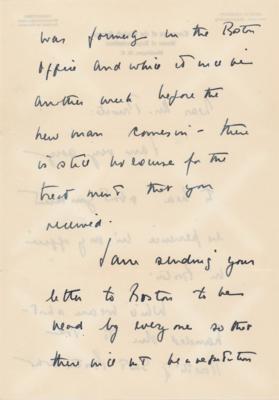 was formerly in the Boston
office and while it will be
another week before the
new man comes in - there
is still no cause for the
treatment that you
received.
I am sending your
letter to Boston to be
read by everyone so that
there will not be a repetition